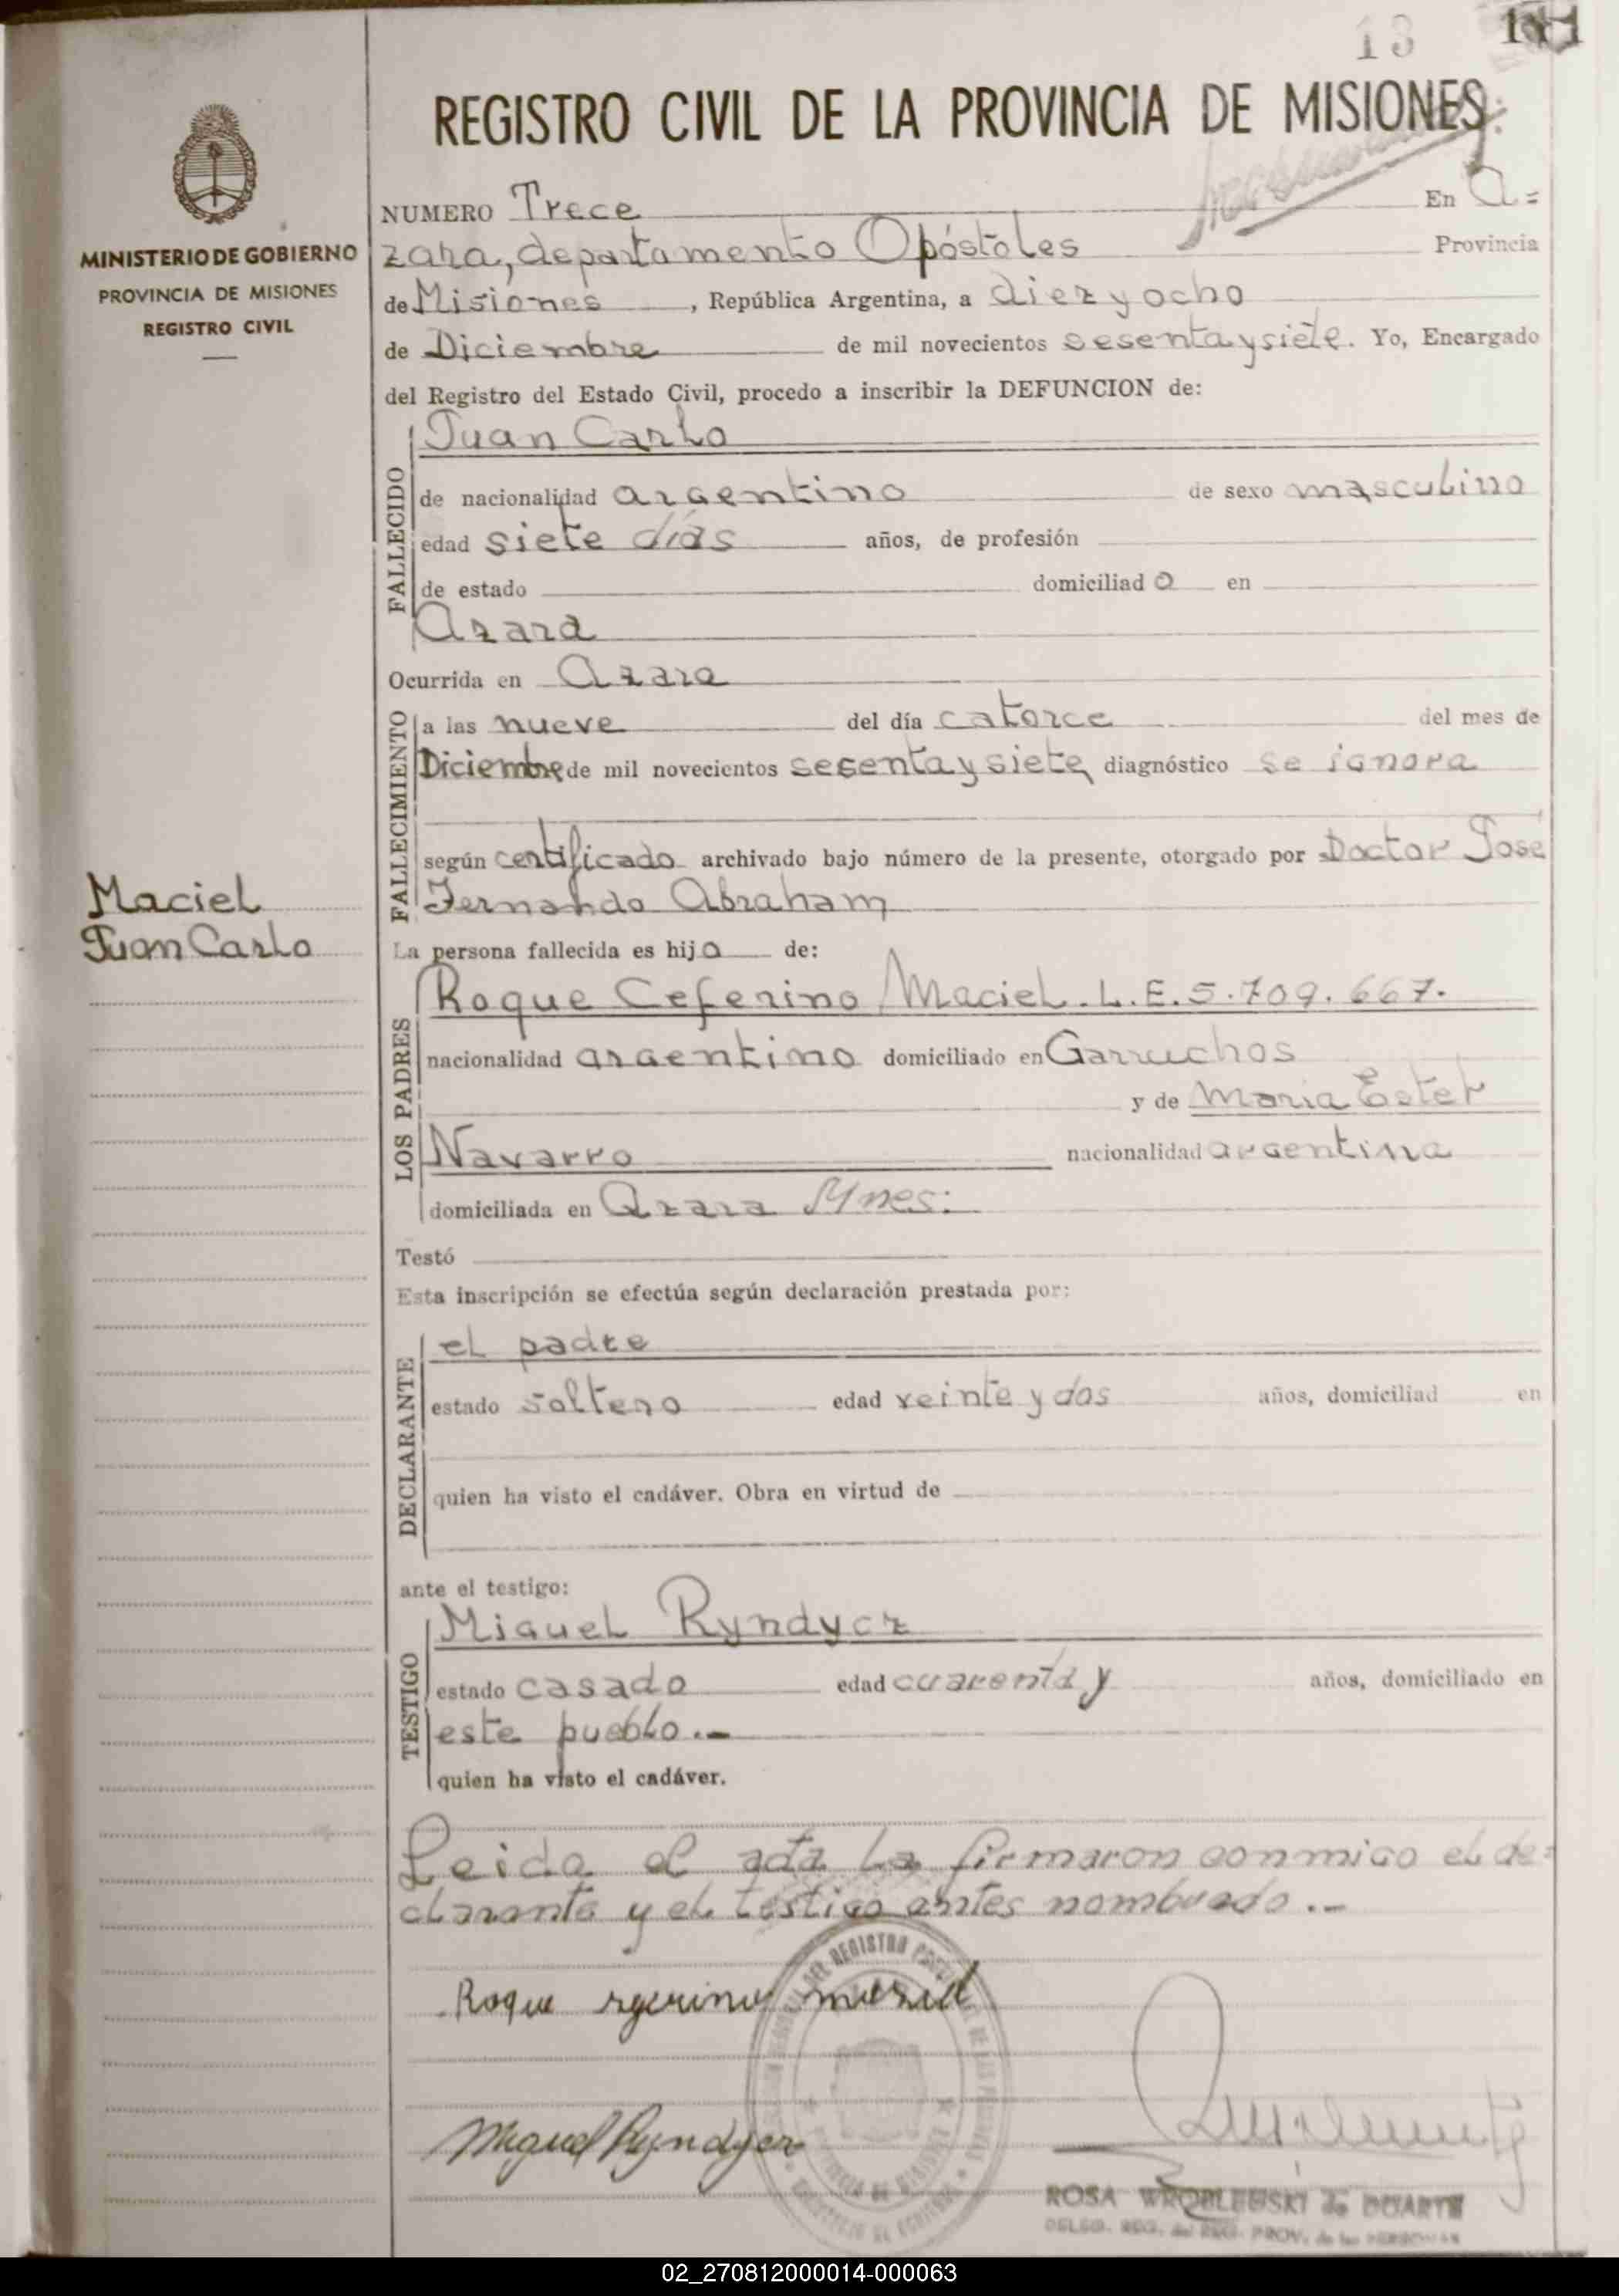 13
REGISTRO CIVIL DE LA PROVINCIA DE MISIONES
MINISTERIO DE GOBIERNO
PROVINCIA DE MISIONES
REGISTRO CIVIL
NUMERO Trece En A=
zara, departamento Apóstoles Provincia
de Misiones, República Argentina, a diez y ocho
de Diciembre de mil novecientos sesenta y siete. Yo, Encargado
del Registro del Estado Civil, procedo a inscribir la DEFUNCION de:
FALLECIDO
Juan Carlo
de nacionalidad argentino de sexo masculino
edad siete días años, de profesión
de estado domiciliado en
Azara
Ocurrida en Azara
FALLECIMIENTO
a las nueve del día catorce del mes de
Diciembre de mil novecientos sesenta y siete diagnóstico se ignora
según certificado archivado bajo número de la presente, otorgado por Doctor José
Fernando Abraham
Maciel
Juan Carlo
La persona fallecida es hijo de:
LOS PADRES
Roque Ceferino Maciel. L.E. 5.709.667.
nacionalidad argentino domiciliado en Garruchos
y de Maria Ester
Navarro nacionalidad argentina
domiciliada en Azara Mnes.
Testó
Esta inscripción se efectúa según declaración prestada por:
DECLARANTE
el padre
estado soltero edad veinte y dos años, domiciliad en
quien ha visto el cadáver. Obra en virtud de
ante el testigo:
TESTIGO
Miguel Ryndycz
estado casado edad cuarenta y años, domiciliado en
este pueblo.-
quien ha visto el cadáver.
Leida el acta la firmaron conmigo el de=
clarante y el testigo antes nombrado.-
Roque
Miguel Ryndycz
ROSA WROBLEUSKI de DUARTE
02_270812000014-000063